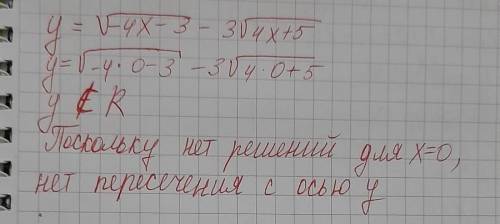 y = √-4x-3 - 3√4x+5
y=√-4·0-3 - 3√4·0+5
y ∉ R
Поскольку нет решений для x=0,
нет пересечения с осью y